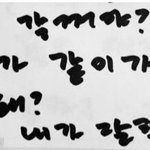 갈꺼야?
가 같이 가
해?
내가